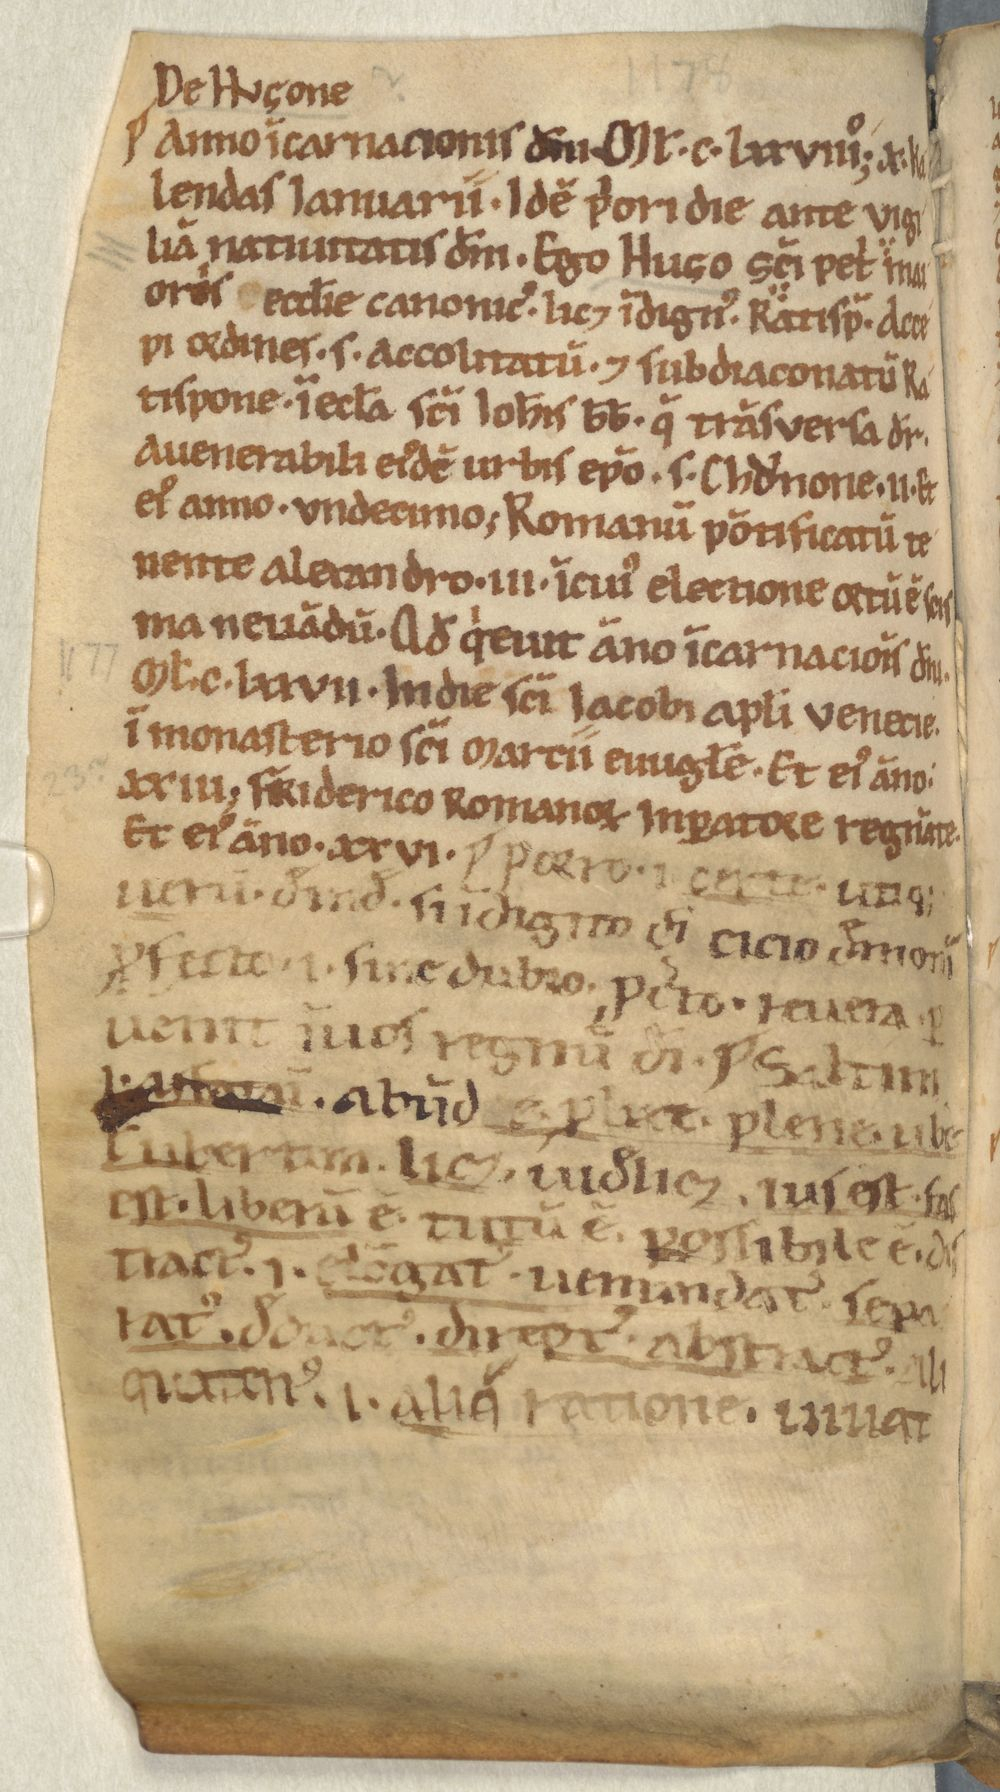 De Hugone
Anno īcarnacionis dn̄i. Ml̄. c. lxxviiiº; x. ka
lendas Ianuarii. Idē pori die ante vigi
liā natiuitatis dn̄i. Ego Hugo sc̄i pet' ī mai
oris eccl̄ie canonic'. licꝫ īdign'. Ratisp̄. Acce
pi ordines. s. Accolitatū. ⁊ subdiaconatū Ra
tispone. ī eccl̄a sc̄i Ioh̄is bb̄. q̄ trāsversa dr̄.
A uenerabili ei'dē urbis ep̄o. s. Chv̊none. ii. Et
ei' anno. vndecimo; Romanū pōtificatū te
nente alexandro. iii. ī cui' electione ortū ē scis
ma neuādū. Ad qieuit āno īcarnaciōis dn̄i.
Ml̄. c. lxxvii. In die sc̄i Iacobi apl̄i venecie.
ī monasterio sc̄i Marcii euuḡlē. Et ei' āno.
xxiii; Friderico Romanoꝝ Inꝑatore regnāte.
Et ei' āno. xxvi. Porro. i. certe. utiqꝫ
uerū. si idigno cicio
ꝓfecto. i. sine dubio. reuera. ꝑ
uenit ī uos regnū dī. Saltim
abūd plene. ube
t' ubertim. licꝫ. licꝫ. ius est. fas
est. liberū ē. tutū ē. possibile ē. dis
tract'. i. elōgat'. sepa
rat'. abstract'. Ali
quaten'. i. aliq̄ ratione.